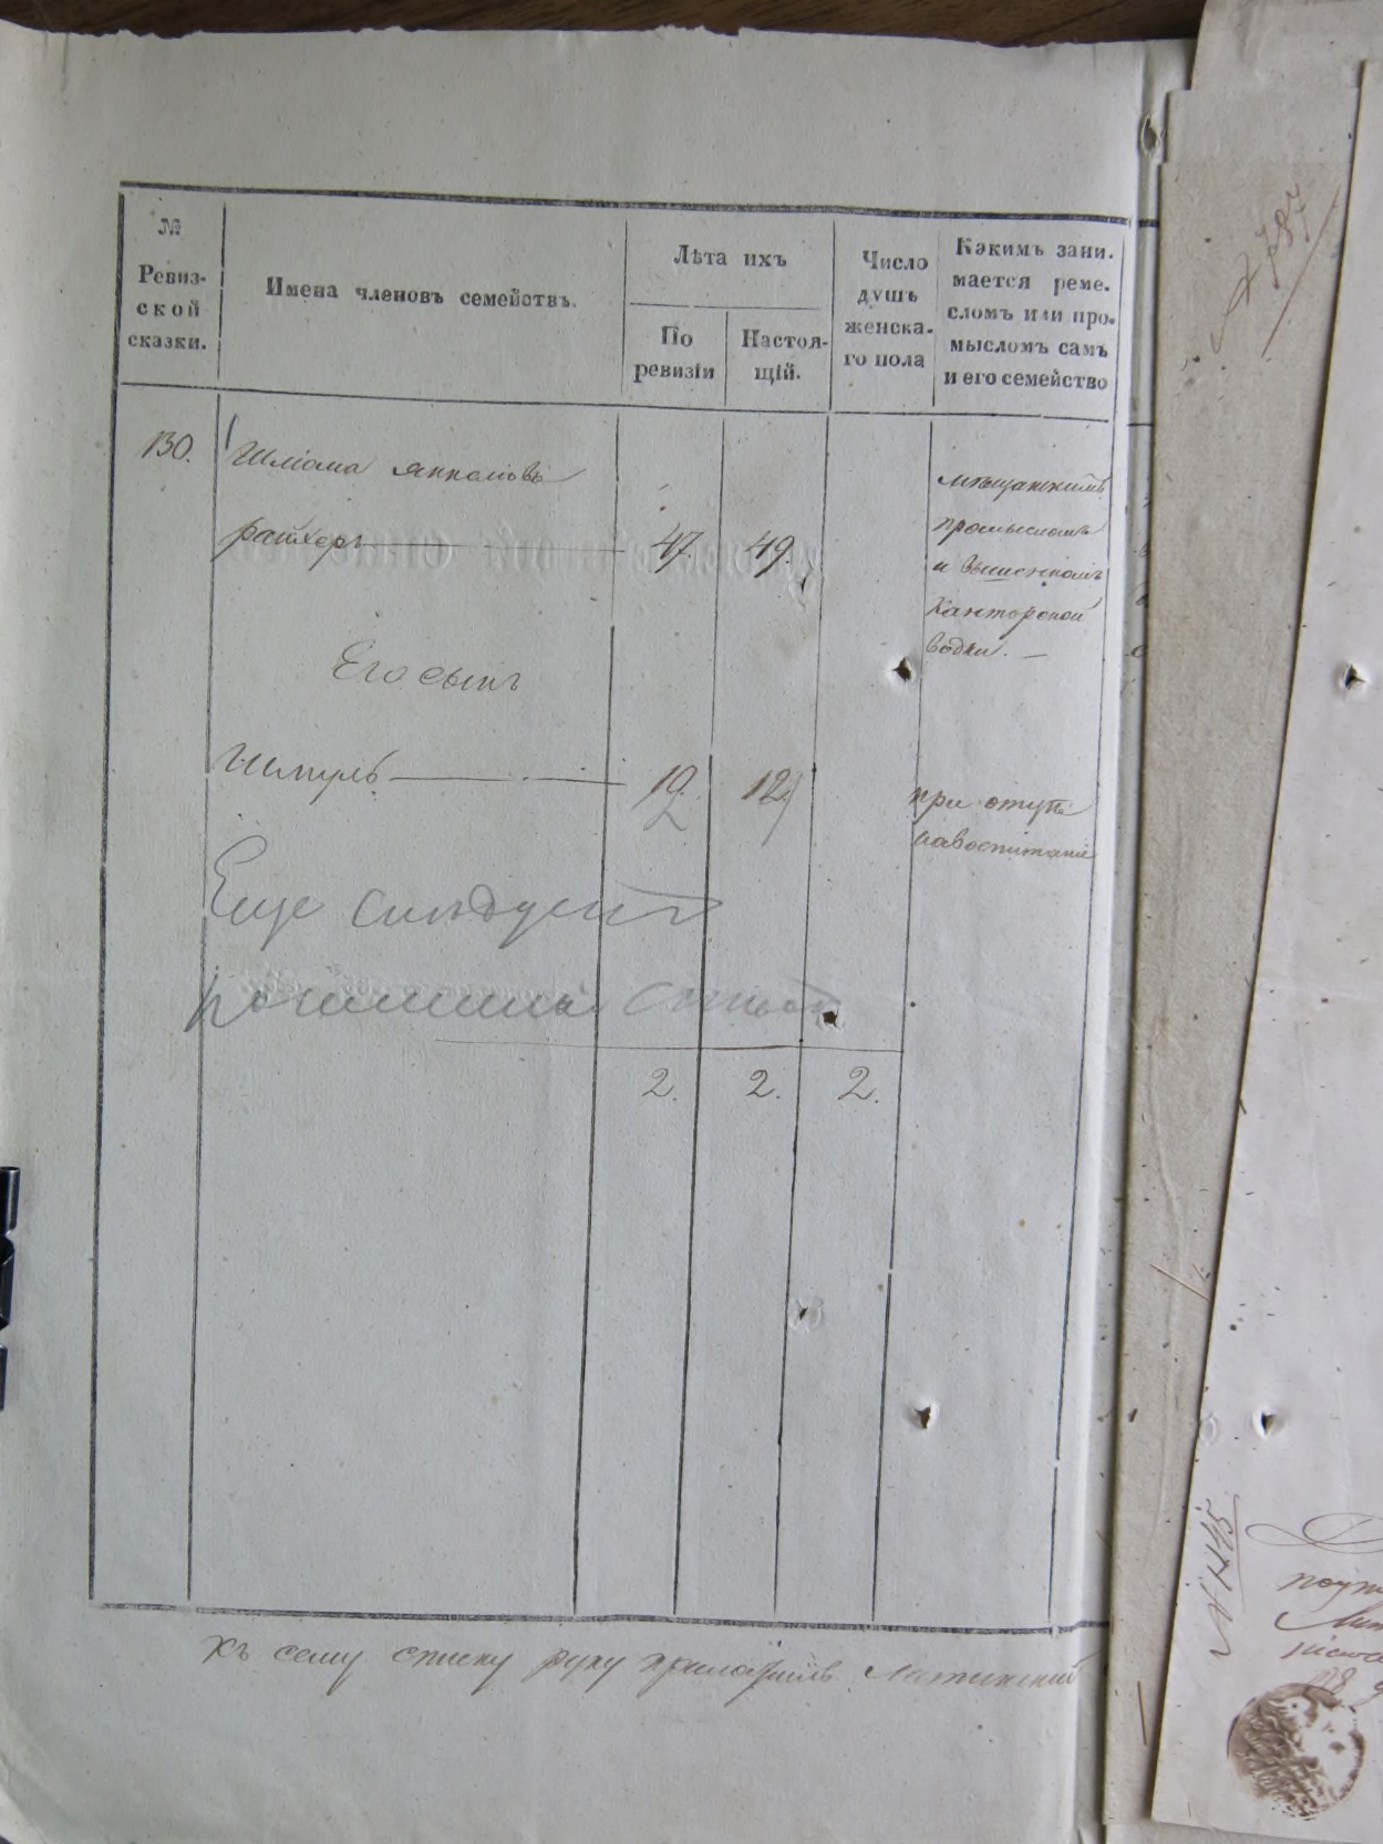 №
Ревиз-
ской
сказки.
Имена членовъ семействъ.
Лѣта ихъ
По
ревизіи
Настоя-
щій.
Число
душъ
женска-
го пола
Какимъ зани-
мается реме-
сломъ или про-
мысломъ самъ
и его семейство
130.
Шліома
47. 49.
мѣщанскимъ
промысломъ
и
Канторской
водки. —
Его сынъ
Шмуль
12 12
при отцѣ
на воспитаніи
Еще слѣдуетъ
2. 2. 2.
Къ сему списку руку приложилъ
№ 1145